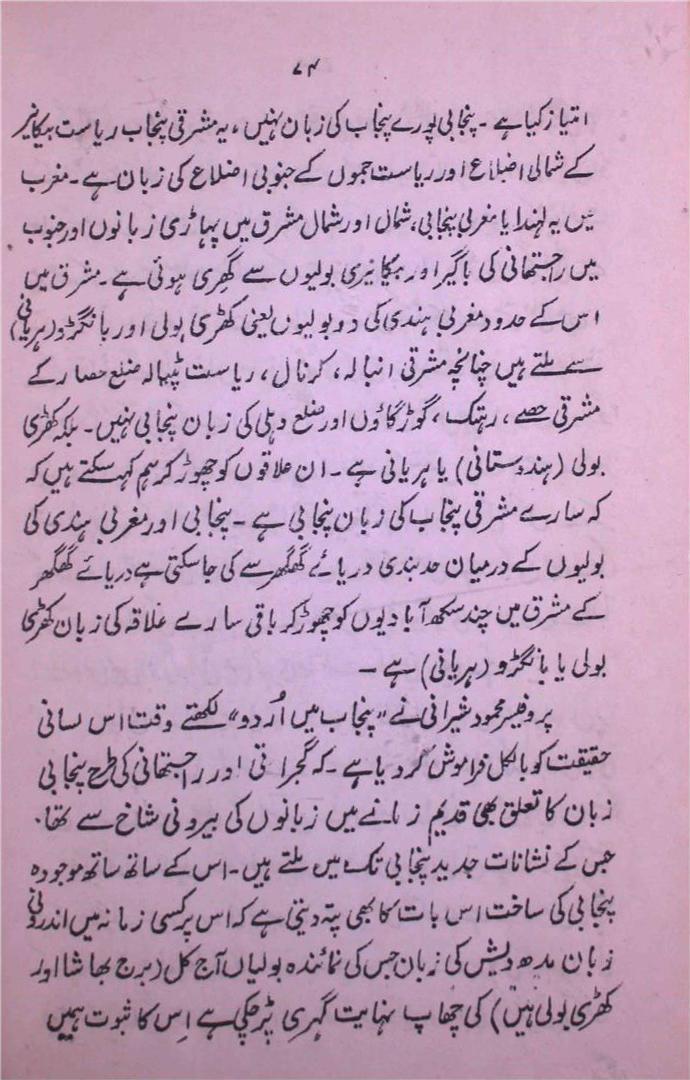 ۷۴
امتیاز کیا ہے ۔ پنجابی پورے پنجاب کی زبان نہیں ، یہ مشرقی پنجاب ریاست بیکانیر
کے شمالی اضلاع اور ریاست جموں کے جنوبی اضلاع کی زبان ہے ۔ مغرب
میں یہ لہندا یا مغربی پنجابی، شمال اور شمال مشرق میں پہاڑی زبانوں اور جنوب
میں راجستھانی کی باگیر اور بیکانیری بولیوں سے گھِری ہوئی ہے ۔ مشرق میں
اس کے حدود مغربی ہندی کی دو بولیوں یعنی کھڑی بولی اور بانگڑو (ہریانی)
سے ملتے ہیں چنانچہ مشرقی انبالہ ، کرنال ، ریاست پٹیالہ ضلع حصار کے
مشرقی حصے ، رہتک ، گوڑگاؤں اور ضلع دہلی کی زبان پنجابی نہیں ۔ بلکہ کھڑی
بولی (ہندوستانی) یا ہریانی ہے ۔ ان علاقوں کو چھوڑ کر ہم کہہ سکتے ہیں کہ
کہ سارے مشرقی پنجاب کی زبان پنجابی ہے ۔ پنجابی اور مغربی ہندی کی
بولیوں کے درمیان حد بندی دریائے گھگھر سے کی جا سکتی ہے دریائے گھگھر
کے مشرق میں چند سکھ آبادیوں کو چھوڑ کر باقی سارے علاقہ کی زبان کھڑی
بولی یا بانگڑو (ہریانی) ہے ۔
پروفیسر محمود شیرانی نے "پنجاب میں اُردو" لکھتے وقت اس لسانی
حقیقت کو بالکل فراموش کر دیا ہے ۔ کہ گجراتی اور راجستھانی کی طرح پنجابی
زبان کا تعلق بھی قدیم زمانے میں زبانوں کی بیرونی شاخ سے تھا ۔
جس کے نشانات جدید پنجابی تک میں ملتے ہیں ۔ اس کے ساتھ ساتھ موجودہ
پنجابی کی ساخت اس بات کا بھی پتہ دیتی ہے کہ اس پر کسی زمانہ میں اندرونی
زبان مدھ دیش کی زبان جس کی نمائندہ بولیاں آج کل (برج بھاشا اور
کھڑی بولی ہیں) کی چھاپ نہایت گہری پڑ چکی ہے اِس کا ثبوت ہمیں